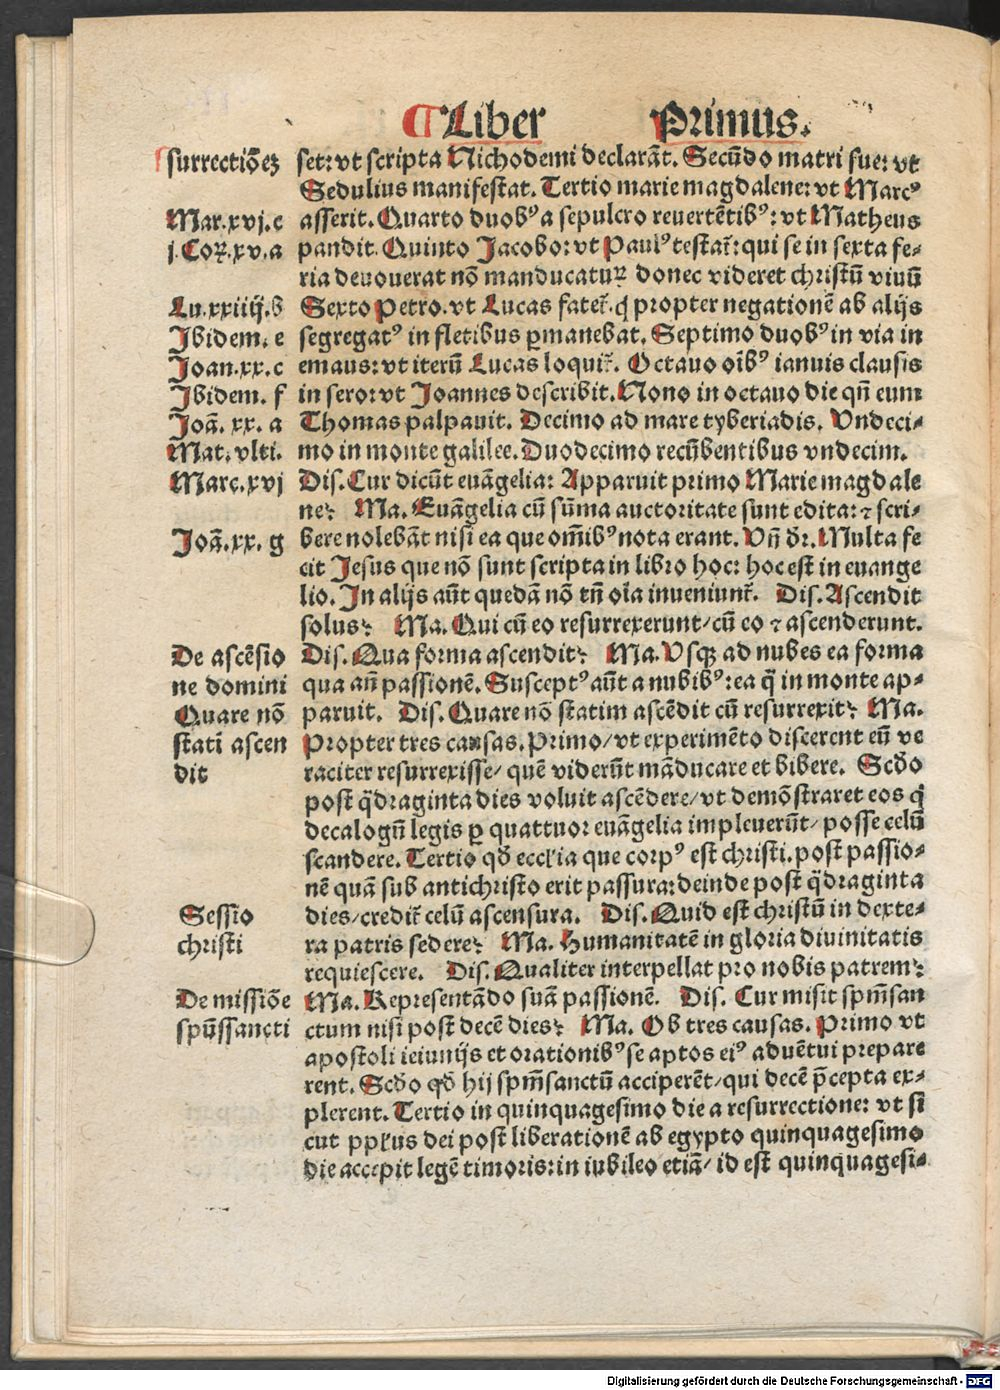 ¶ Liber Primus.
surrectiõeʒ
set: vt scripta Nichodemi declarãt. Secũdo matri sue: vt
Sedulius manifestat. Tertio marie magdalene: vt Marcꝰ
Mar.xvj.c
asserit. Quarto duobꝰ a sepulcro reuertẽtibꝰ: vt Matheus
j.Coꝝ.xv.a
pandit. Quinto Jacobo: vt Paulꝰ testat̃: qui se in sexta fe-
ria deuouerat nõ manducatuꝝ donec videret christũ viuũ
Lu.xxiiij.d
Sexto Petro. vt Lucas fatet̃. q̃ propter negationẽ ab alijs
Jbidem. e
segregatꝰ in fletibus ꝑmanebat. Septimo duobꝰ in via in
Joan.xx.c
emaus: vt iterũ Lucas loquit̃. Octauo oĩbꝰ ianuis clausis
Jbidem. f
in sero: vt Joannes describit. Nono in octauo die qñ eum
Joã. xx. a
Thomas palpauit. Decimo ad mare tyberiadis. Vndeci-
Mat. vlti.
mo in monte galilee. Duodecimo recũbentibus vndecim.
Marc.xvj
Dis. Cur dicũt euãgelia: Apparuit primo Marie magdale
ne: Ma. Euãgelia cũ sũma auctoritate sunt edita: ⁊ scri-
Joã.xx. g
bere nolebãt nisi ea que om̃ibꝰ nota erant. Vñ dr̃. Multa fe
cit Jesus que nõ sunt scripta in libro hoc: hoc est in euange
lio. Jn alijs aũt quedã nõ tñ oĩa inueniunt̃. Dis. Ascendit
solus: Ma. Qui cũ eo resurrexerunt/ cũ eo ⁊ ascenderunt.
De ascẽsio
Dis. Qua forma ascendit: Ma. Vsqꝫ ad nubes ea forma
ne domini
qua añ passionẽ. Susceptꝰ aũt a nubibꝰ: ea q̃ in monte ap-
Quare nõ
paruit. Dis. Quare nõ statim ascẽdit cũ resurrexit: Ma.
statĩ ascen
Propter tres causas. Primo/ vt experimẽto discerent eũ ve
dit
raciter resurrexisse/ quẽ viderũt mãducare et bibere. Scd̃o
post q̃draginta dies voluit ascẽdere/ vt demõstraret eos q̃
decalogũ legis ꝑ quattuor euãgelia impleuerũt/ posse celũ
scandere. Tertio qd̃ eccl̃ia que corpꝰ est christi. post passio-
nẽ quã sub antichristo erit passura: deinde post q̃draginta
Sessio
dies/ credit̃ celũ ascensura. Dis. Quid est christũ in dexte-
christi
ra patris sedere: Ma. Humanitatẽ in gloria diuinitatis
requiescere. Dis. Qualiter interpellat pro nobis patrem:
De missiõe
Ma. Representãdo suã passionẽ. Dis. Cur misit spm̃san
spũssancti
ctum nisi post decẽ dies: Ma. Ob tres causas. Primo vt
apostoli ieiunijs et orationibꝰ se aptos eiꝰ aduẽtui prepare
rent. Scd̃o qd̃ hij spm̃sanctũ acciperẽt/ qui decẽ p̃cepta ex-
plerent. Tertio in quinquagesimo die a resurrectione: vt si
cut ppl̃us dei post liberationẽ ab egypto quinquagesimo
die accepit legẽ timoris: in iubileo etiã/ id est quinquagesi-
Digitalisierung gefördert durch die Deutsche Forschungsgemeinschaft - DFG